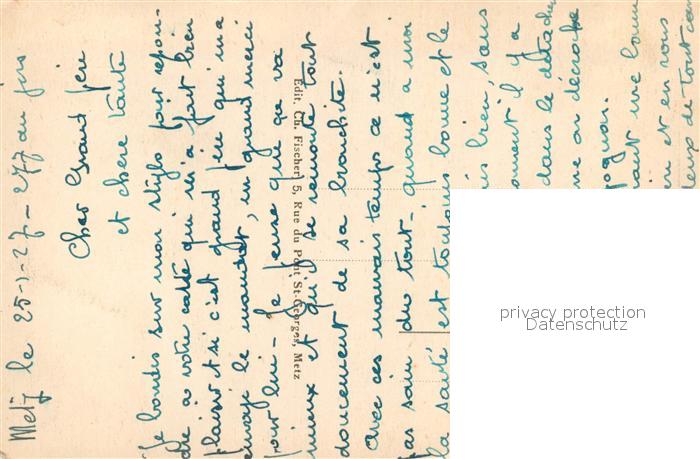 Metz le 25-1-27 - 277 au jus
Cher Grand père
et chère tante
Je bondis sur mon stylo pour répon-
dre à votre carte qui m'a fait bien
plaisir et si c'est grand père qui m'a
envoyé le mandat, un grand merci
pour lui - Je pense que ça va
mieux et qu'il se remonte tout
doucement de sa bronchite.
Avec ces mauvais temps ce n'est
pas sain du tout - quand à moi
la santé est toujours bonne et le
bien, sans
il y a
dans le
on décroche
une
et en vous
de tout
Edit. Ch. Fischer, 5, Rue du Pont St-Georges, Metz
privacy protection
Datenschutz